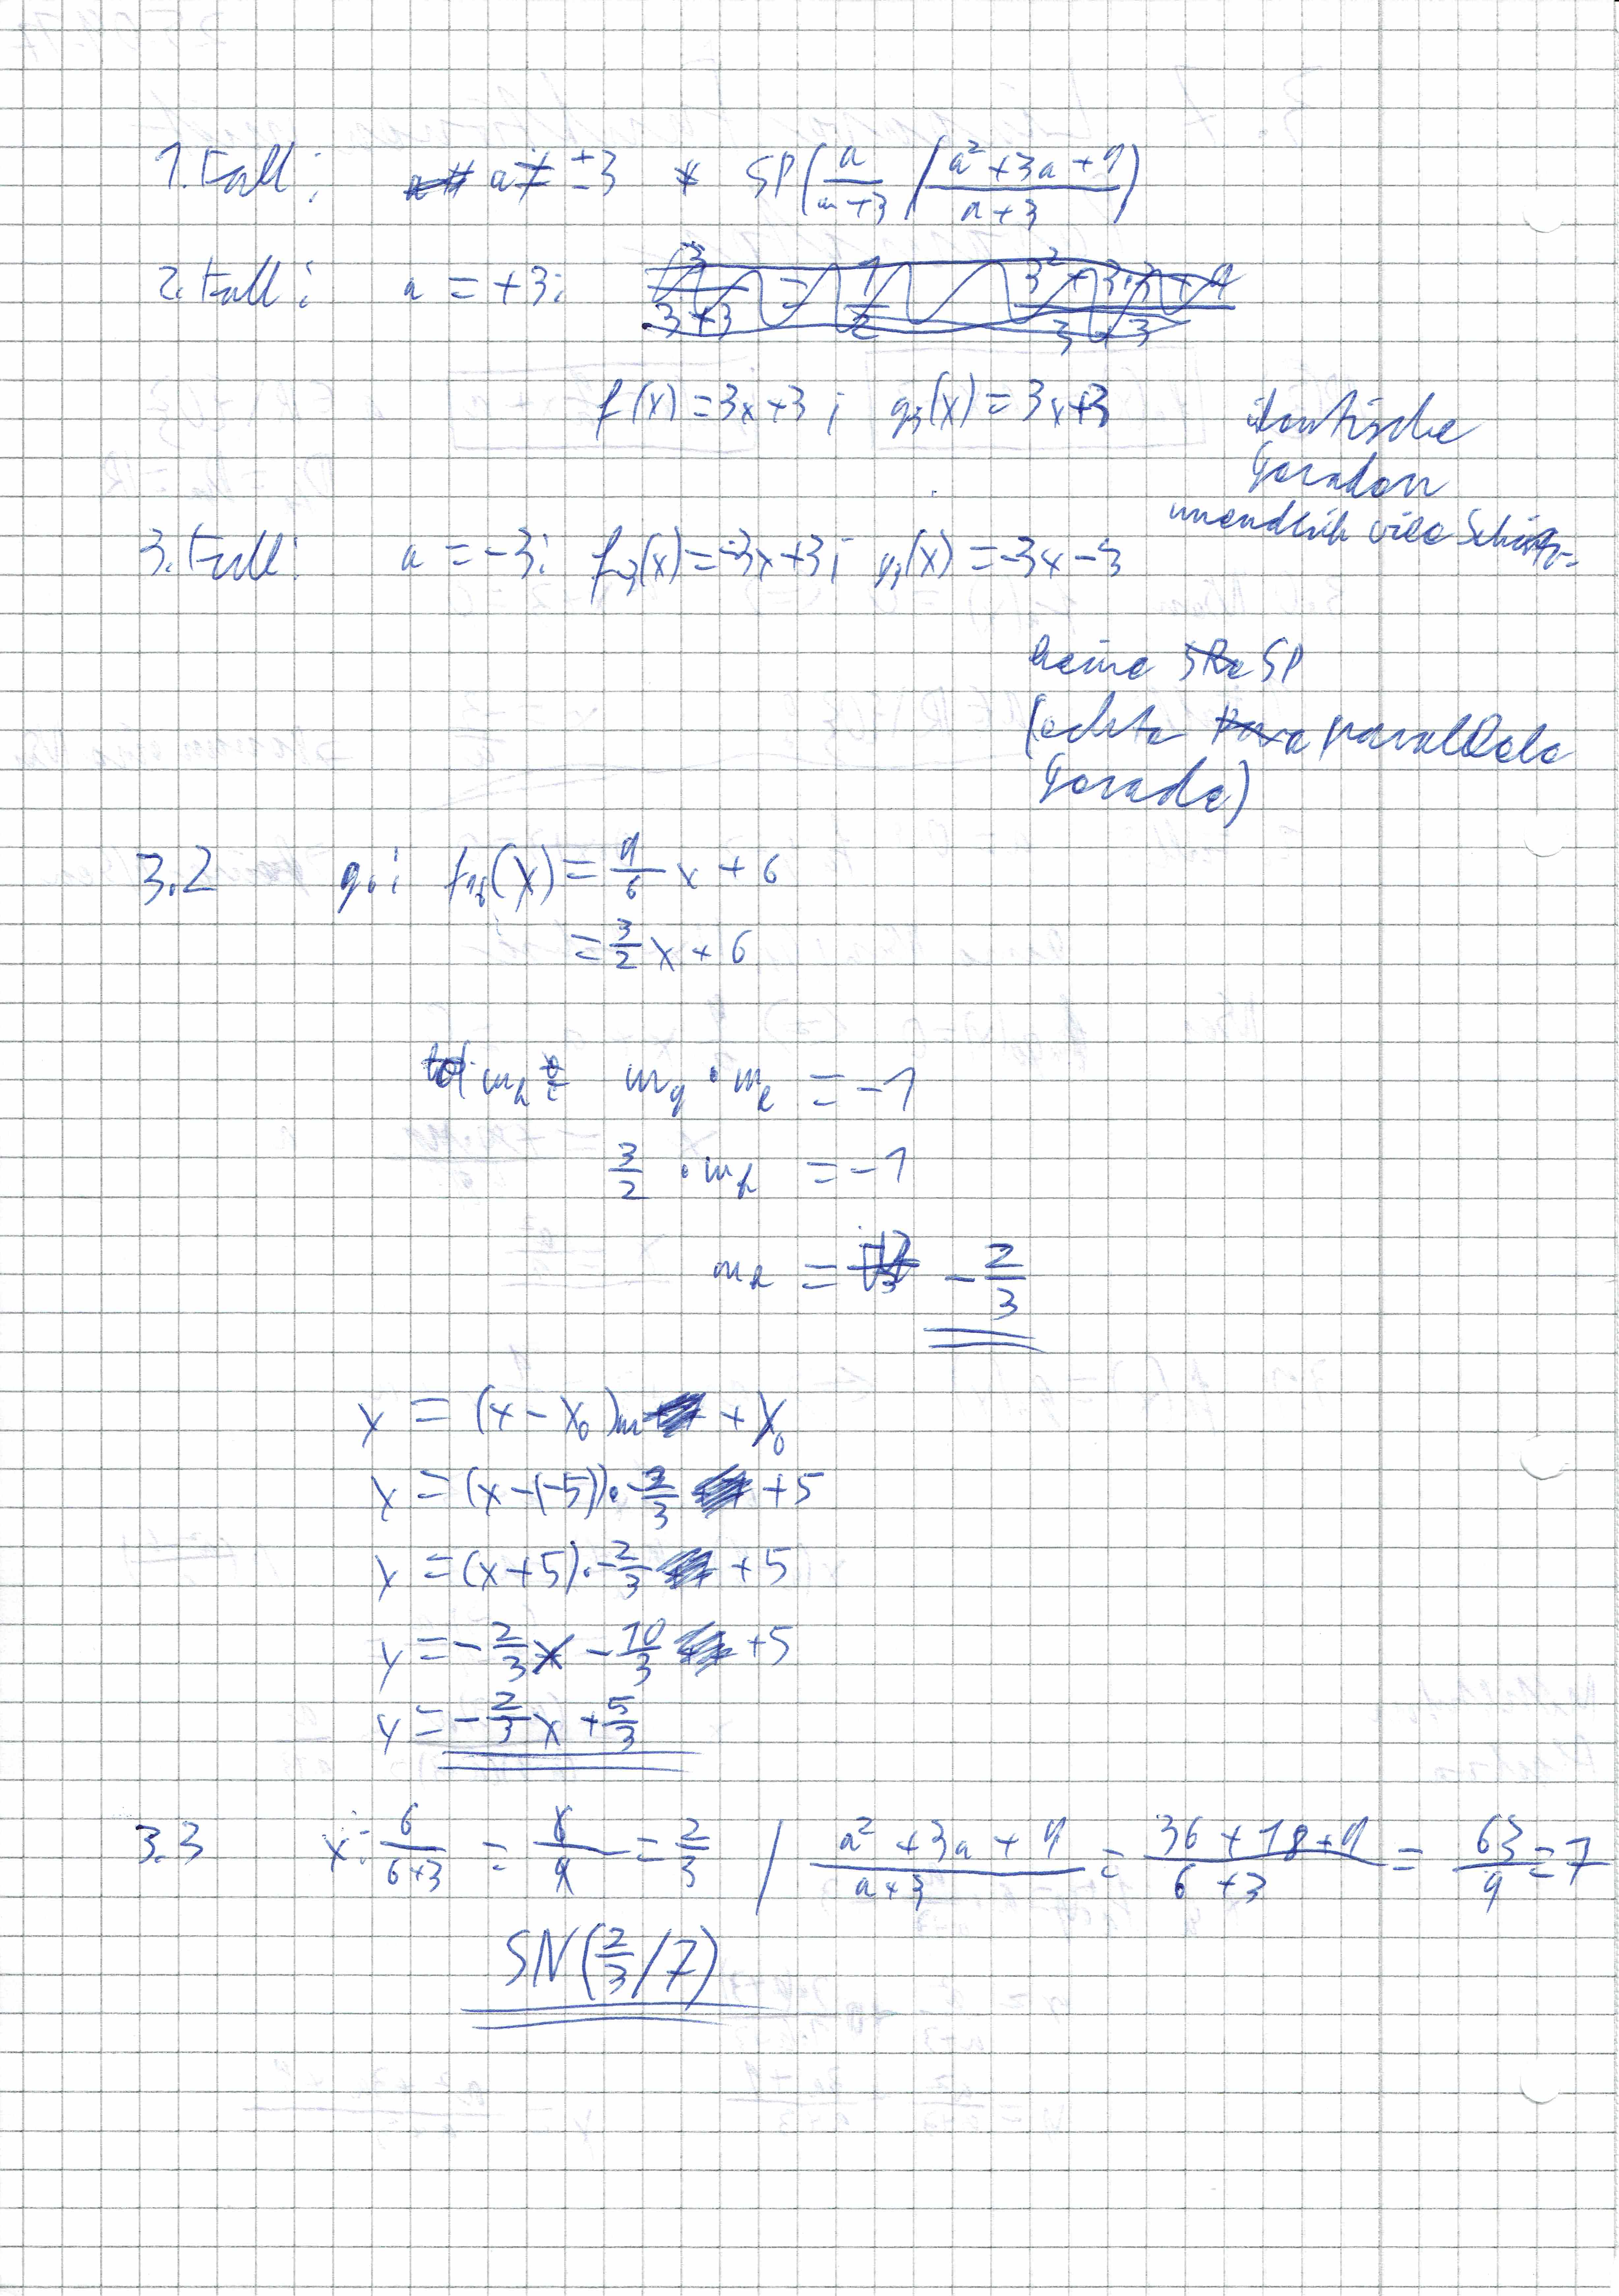 1. Fall: a ≠ ±3 SP(a/(a+3) / (a²+3a+9)/(a+3))
2. Fall: a = +3:
f(x) = 3x+3 ; g₃(x) = 3x+3 identische
Geraden
unendlich viele
3. Fall: a = -3: f₋₃(x) = -3x+3 ; g₃(x) = -3x-3
keine SP
(echte parallele
Gerade)
3.2 g: (x) = 9/6 x + 6
= 3/2 x + 6
m_g · m_h = -1
3/2 · m_h = -1
m_h = -2/3
y = (x - x₀)m + y₀
y = (x-(-5))·-2/3 +5
y = (x+5)·-2/3 +5
y = -2/3 x - 10/3 +5
y = -2/3 x + 5/3
3.3 x: 6/(6+3) = 6/9 = 2/3 / (a²+3a+9)/(a+3) = (36+18+9)/(6+3) = 63/9 = 7
SN(2/3 / 7)